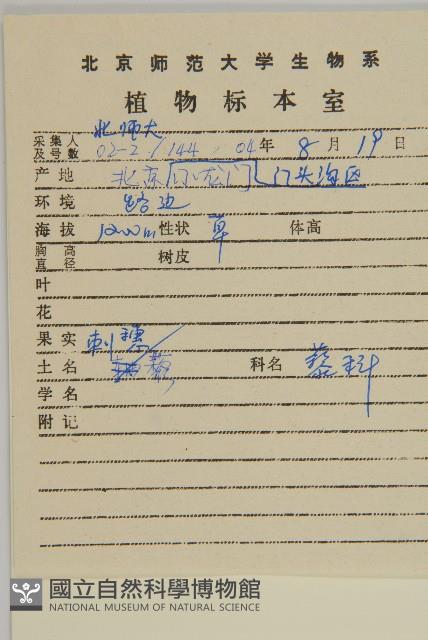 北京师范大学生物系
植物标本室
北师大
采集人及号数 02-2/144, 04年8月19日
产地 北京 门头沟区
环境 路边
海拔 1200m 性状 草 体高
胸高直径 树皮
叶
花
果实
土名 刺藜 科名 藜科
学名
附记
國立自然科學博物館
NATIONAL MUSEUM OF NATURAL SCIENCE